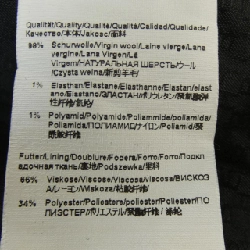 Qualität/Quality/Qualité/Qualità/Calidad/Qualidade/
Качество/本体/Jakość/面料
98% Schurwolle/Virgin wool/Laine vierge/Lana
vergine/Lana Virgen/Lã
Virgem/НАТУРАЛЬНАЯ ШЕРСТЬ/ウール
/Czysta wełna/新剪羊毛
1% Elasthan/Elastane/Elasthanne/Elastan/elast
ano/Elastano/ЭЛАСТАН/ポリウレタン/聚氨酯弹
性纤维/氨纶
1% Polyamid/Polyamide/Poliammide/poliamida/
Poliamida/ПОЛИАМИД/ナイロン/Poliamid/聚
酰胺纤维
Futter/Lining/Doublure/Fodera/Forro/Forro/Подкл
адочная ткань/裏地/Podszewka/里料
66% Viskose/Viscose/Viscose/Viscosa/ВИСКОЗ
А/レーヨン/Wiskoza/粘胶纤维
34% Polyester/Polyester/Poliester/ПО
ЛИЭСТЕР/ポリエステル/聚酯纤维/涤纶